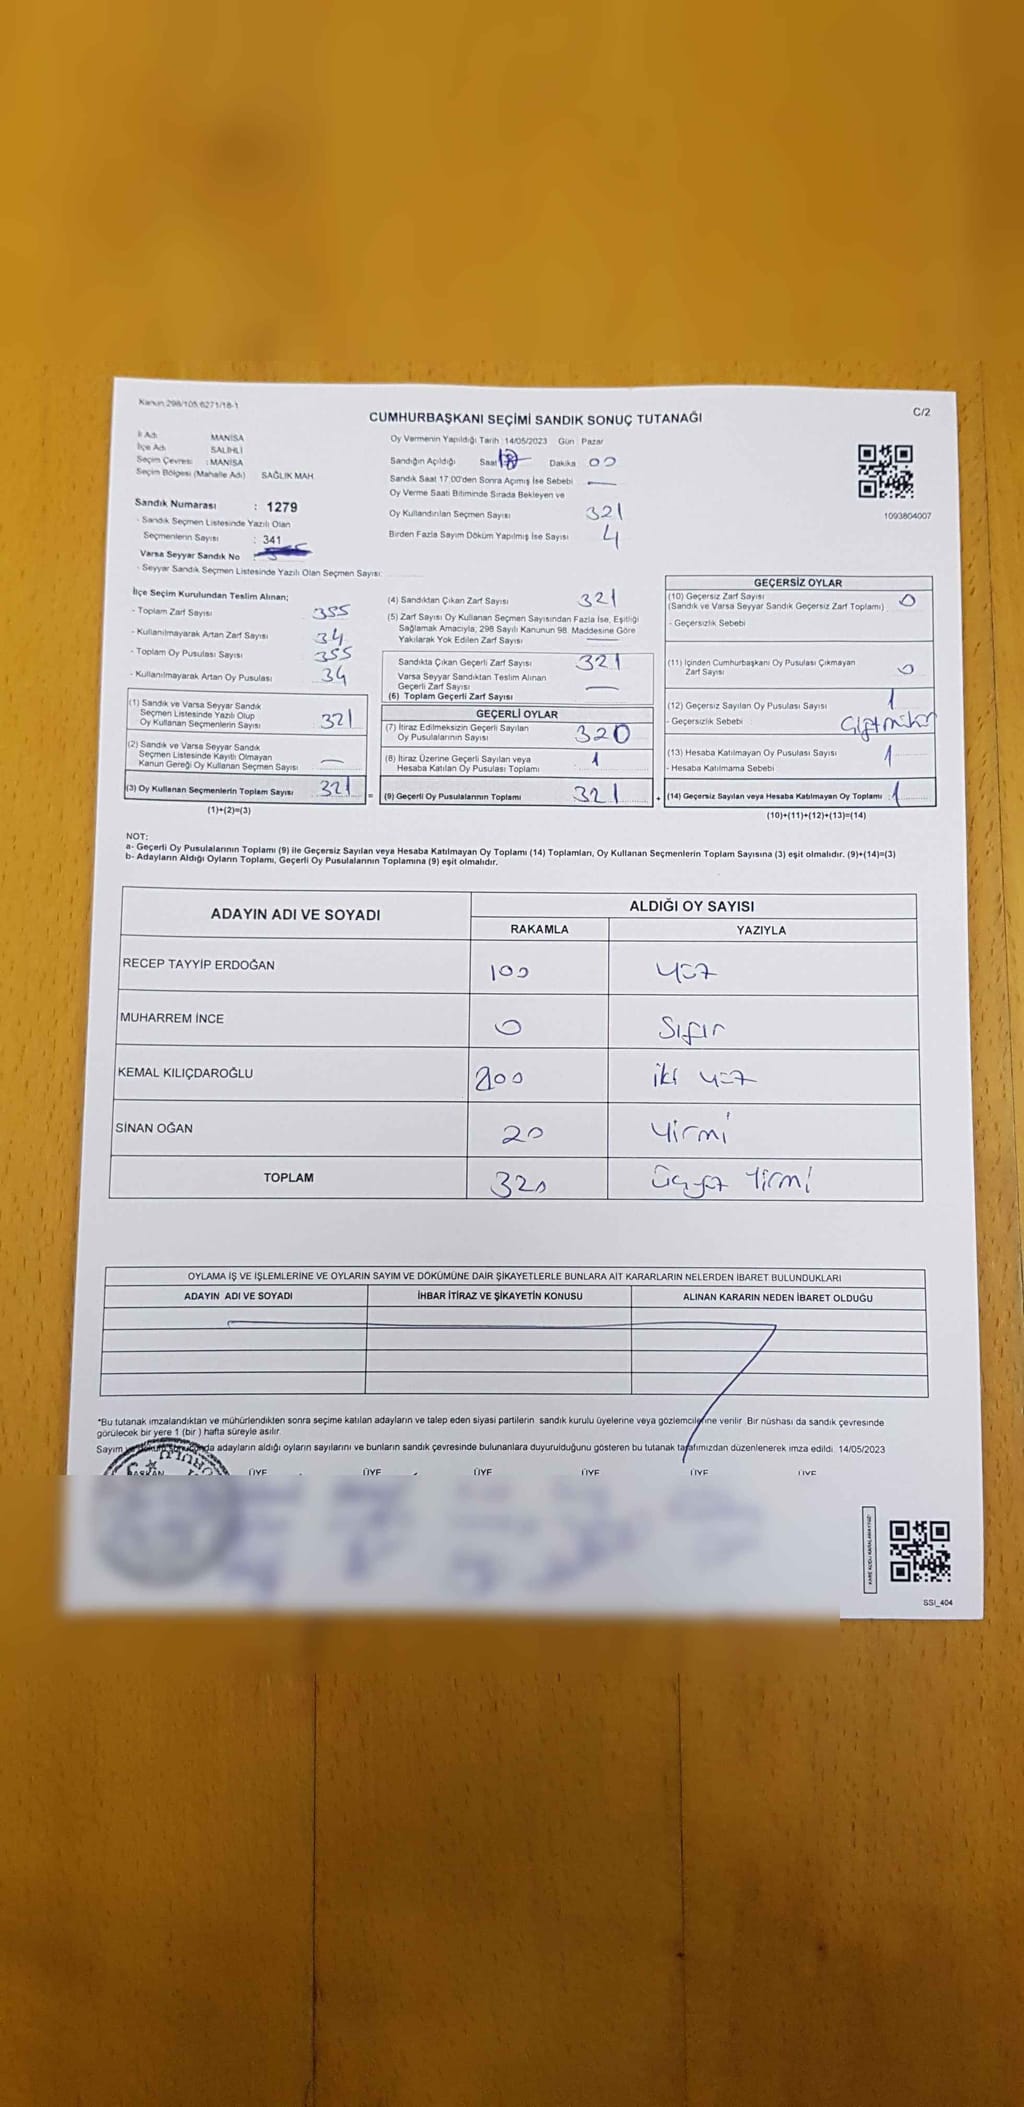 Kanun 298/105,6271/18-1
C/2
CUMHURBAŞKANI SEÇİMİ SANDIK SONUÇ TUTANAĞI
İl Adı : MANİSA
İlçe Adı : SALİHLİ
Seçim Çevresi : MANİSA
Seçim Bölgesi (Mahalle Adı) SAĞLIK MAH
Sandık Numarası : 1279
- Sandık Seçmen Listesinde Yazılı Olan
Seçmenlerin Sayısı : 341
Varsa Seyyar Sandık No
- Seyyar Sandık Seçmen Listesinde Yazılı Olan Seçmen Sayısı:
Oy Vermenin Yapıldığı Tarih 14/05/2023 Gün Pazar
Sandığın Açıldığı Saat Dakika 00
Sandık Saat 17.00'den Sonra Açımış İse Sebebi —
Oy Verme Saati Bitiminde Sırada Bekleyen ve
Oy Kullandırılan Seçmen Sayısı 321
Birden Fazla Sayım Döküm Yapılmış İse Sayısı 4
1093804007
İlçe Seçim Kurulundan Teslim Alınan;
- Toplam Zarf Sayısı 355
- Kullanılmayarak Artan Zarf Sayısı 34
- Toplam Oy Pusulası Sayısı 355
- Kullanılmayarak Artan Oy Pusulası 34
(1) Sandık ve Varsa Seyyar Sandık
Seçmen Listesinde Yazılı Olup
Oy Kullanan Seçmenlerin Sayısı 321
(2) Sandık ve Varsa Seyyar Sandık
Seçmen Listesinde Kayıtlı Olmayan
Kanun Gereği Oy Kullanan Seçmen Sayısı —
(3) Oy Kullanan Seçmenlerin Toplam Sayısı 321
(1)+(2)=(3)
=
(4) Sandıktan Çıkan Zarf Sayısı 321
(5) Zarf Sayısı Oy Kullanan Seçmen Sayısından Fazla İse, Eşitliği
Sağlamak Amacıyla, 298 Sayılı Kanunun 98. Maddesine Göre
Yakılarak Yok Edilen Zarf Sayısı —
Sandıkta Çıkan Geçerli Zarf Sayısı 321
Varsa Seyyar Sandıktan Teslim Alınan
Geçerli Zarf Sayısı —
(6) Toplam Geçerli Zarf Sayısı
GEÇERLİ OYLAR
(7) İtiraz Edilmeksizin Geçerli Sayılan
Oy Pusulalarının Sayısı 320
(8) İtiraz Üzerine Geçerli Sayılan veya
Hesaba Katılan Oy Pusulası Toplamı 1
(9) Geçerli Oy Pusulalarının Toplamı 321
+
GEÇERSİZ OYLAR
(10) Geçersiz Zarf Sayısı 0
(Sandık ve Varsa Seyyar Sandık Geçersiz Zarf Toplamı)
- Geçersizlik Sebebi
(11) İçinden Cumhurbaşkanı Oy Pusulası Çıkmayan
Zarf Sayısı 0
(12) Geçersiz Sayılan Oy Pusulası Sayısı 1
- Geçersizlik Sebebi Çift mühür
(13) Hesaba Katılmayan Oy Pusulası Sayısı 1
- Hesaba Katılmama Sebebi
(14) Geçersiz Sayılan veya Hesaba Katılmayan Oy Toplamı : 1
(10)+(11)+(12)+(13)=(14)
NOT:
a- Geçerli Oy Pusulalarının Toplamı (9) ile Geçersiz Sayılan veya Hesaba Katılmayan Oy Toplamı (14) Toplamları, Oy Kullanan Seçmenlerin Toplam Sayısına (3) eşit olmalıdır. (9)+(14)=(3)
b- Adayların Aldığı Oyların Toplamı, Geçerli Oy Pusulalarının Toplamına (9) eşit olmalıdır.
ADAYIN ADI VE SOYADI ALDIĞI OY SAYISI
RAKAMLA YAZIYLA
RECEP TAYYİP ERDOĞAN 100 yüz
MUHARREM İNCE 0 Sıfır
KEMAL KILIÇDAROĞLU 200 iki yüz
SİNAN OĞAN 20 Yirmi
TOPLAM 320 Üçyüz Yirmi
OYLAMA İŞ VE İŞLEMLERİNE VE OYLARIN SAYIM VE DÖKÜMÜNE DAİR ŞİKAYETLERLE BUNLARA AİT KARARLARIN NELERDEN İBARET BULUNDUKLARI
ADAYIN ADI VE SOYADI İHBAR İTİRAZ VE ŞİKAYETİN KONUSU ALINAN KARARIN NEDEN İBARET OLDUĞU
*Bu tutanak imzalandıktan ve mühürlendikten sonra seçime katılan adayların ve talep eden siyasi partilerin sandık kurulu üyelerine veya gözlemcilerine verilir. Bir nüshası da sandık çevresinde
görülecek bir yere 1 (bir) hafta süreyle asılır.
Sayım adayların aldığı oyların sayılarını ve bunların sandık çevresinde bulunanlara duyurulduğunu gösteren bu tutanak tarafımızdan düzenlenerek imza edildi. 14/05/2023
BAŞKAN ÜYE ÜYE ÜYE ÜYE ÜYE ÜYE
SSI_404